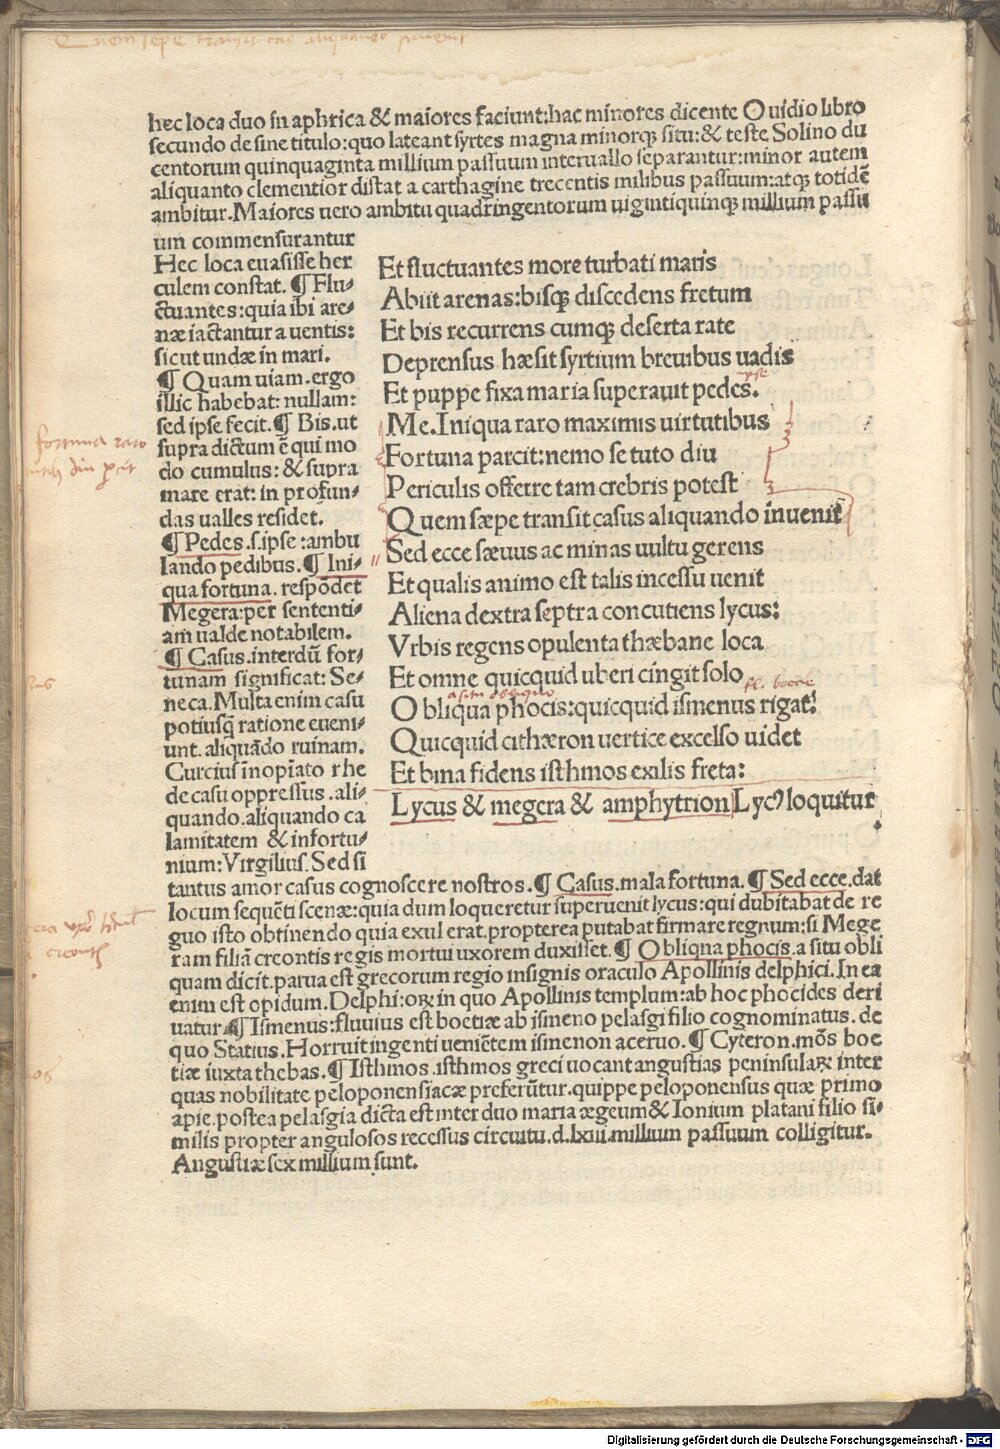 Quem sepe transit cas' aliquando invenit
hec loca duo in aphrica & maiores faciunt:hac minores dicente Ouidio libro
secundo de sine titulo:quo lateant syrtes magna minorq; situ:& teste Solino du
centorum quinquaginta millium passuum interuallo separantur:minor autem
aliquanto clementior distat a carthagine trecentis milibus passuum:atq; totidē
ambitur.Maiores uero ambitu quadringentorum uigintiquinq; millium passu
um commensurantur
Hec loca euasisse her
culem constat. ¶ Flu-
ctuantes:quia ibi are-
næ iactantur a uentis:
sicut undæ in mari.
¶ Quam uiam.ergo
illic habebat: nullam:
sed ipse fecit.¶ Bis.ut
supra dictum ē qui mo
do cumulus: & supra
mare erat: in profun-
das ualles residet.
¶ Pedes.s.ipse :ambu
lando pedibus. ¶ Ini-
qua fortuna. respōdet
Megera:per sententi-
am ualde notabilem.
¶ Casus.interdū for-
tunam significat: Se-
neca. Multa enim casu
potiusq̄ ratione eueni-
unt. aliquādo ruinam.
Curcius inopiato rhe
de casu oppressus .ali-
quando.aliquando ca
lamitatem & infortu-
nium:Virgilius. Sed si
Et fluctuantes more turbati maris
Abiit arenas:bisq; discedens fretum
Et bis recurrens cumq; deserta rate
Deprensus hæsit syrtium breuibus uadis
Et puppe fixa maria superauit pedes.
Me.Iniqua raro maximis uirtutibus
Fortuna parcit:nemo se tuto diu
Periculis offerre tam crebris potest
Quem sæpe transit casus aliquando inuenit
Sed ecce sæuus ac minas uultu gerens
Et qualis animo est talis incessu uenit
Aliena dextra septra concutiens lycus:
Vrbis regens opulenta thæbane loca
Et omne quicquid uberi cingit solo
a situ obliquo
Obliqua phocis:quicquid ismenus rigat:
Quicquid cithæron uertice excelso uidet
Et bina fidens isthmos exilis freta:
Lycus & megera & amphytrion Lycꝰ loquitur
fortuna raro
tantus amor casus cognoscere nostros.¶ Casus.mala fortuna. ¶ Sed ecce.dat
locum sequēti scenæ:quia dum loqueretur superuenit lycus:qui dubitabat de re
guo isto obtinendo quia exul erat.propterea putabat firmare regnum:si Mege
ram filiā creontis regis mortui uxorem duxisset.¶ Obliqna phocis.a situ obli
quam dicit.parua est grecorum regio insignis oraculo Apollinis delphici.In ea
enim est opidum.Delphi:oꝝ in quo Apollinis templum:ab hoc phocides deri
uatur.¶ Ismenus:fluuius est boetiæ ab ismeno pelasgi filio cognominatus. de
quo Statius.Horruit ingenti ueniētem ismenon aceruo.¶ Cyteron.mōs boe
tiæ iuxta thebas.¶ Isthmos.isthmos greci uocant angustias peninsulaꝝ inter
quas nobilitate peloponensiacæ preferūtur.quippe peloponensus quæ primo
apie.postea pelasgia dicta est inter duo maria ægeum & Ionium platani filio si-
milis propter angulosos recessus circuitu.d.lxiii.millium passuum colligitur.
Angustiæ sex millium sunt.
Digitalisierung gefördert durch die Deutsche Forschungsgemeinschaft - DFG